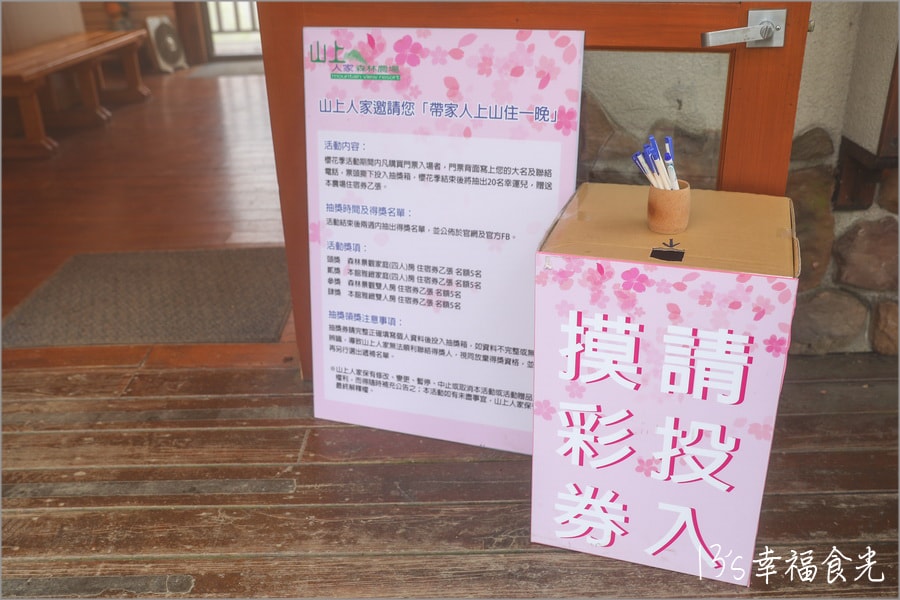 山上
人家 森林農場
mountain view resort
山上人家邀請您「帶家人上山住一晚」
活動內容：
櫻花季活動期間內凡購買門票入場者，門票背面寫上您的大名及聯絡
電話，票頭撕下投入抽獎箱，櫻花季結束後將抽出20名幸運兒，贈送
本農場住宿券乙張。
抽獎時間及得獎名單：
活動結束後兩週內抽出得獎名單，並公佈於官網及官方FB。
活動獎項：
頭獎 森林景觀家庭(四人)房 住宿券乙張 名額5名
貳獎 本館雅緻家庭(四人)房 住宿券乙張 名額5名
參獎 森林景觀雙人房 住宿券乙張 名額5名
肆獎 本館雅緻雙人房 住宿券乙張 名額5名
抽獎領獎注意事項：
抽獎券請完整正確填寫個人資料後投入抽獎箱，如資料不完整或無
辨識，導致山上人家無法順利聯絡得獎人，視同放棄得獎資格，並
再另行選出遞補名單。
※山上人家保有修改、變更、暫停、中止或取消本活動或活動贈品
權利，而得隨時補充公告之；本活動如有未盡事宜，山上人家保
最終解釋權。
請投入
摸彩券
13's幸福食光